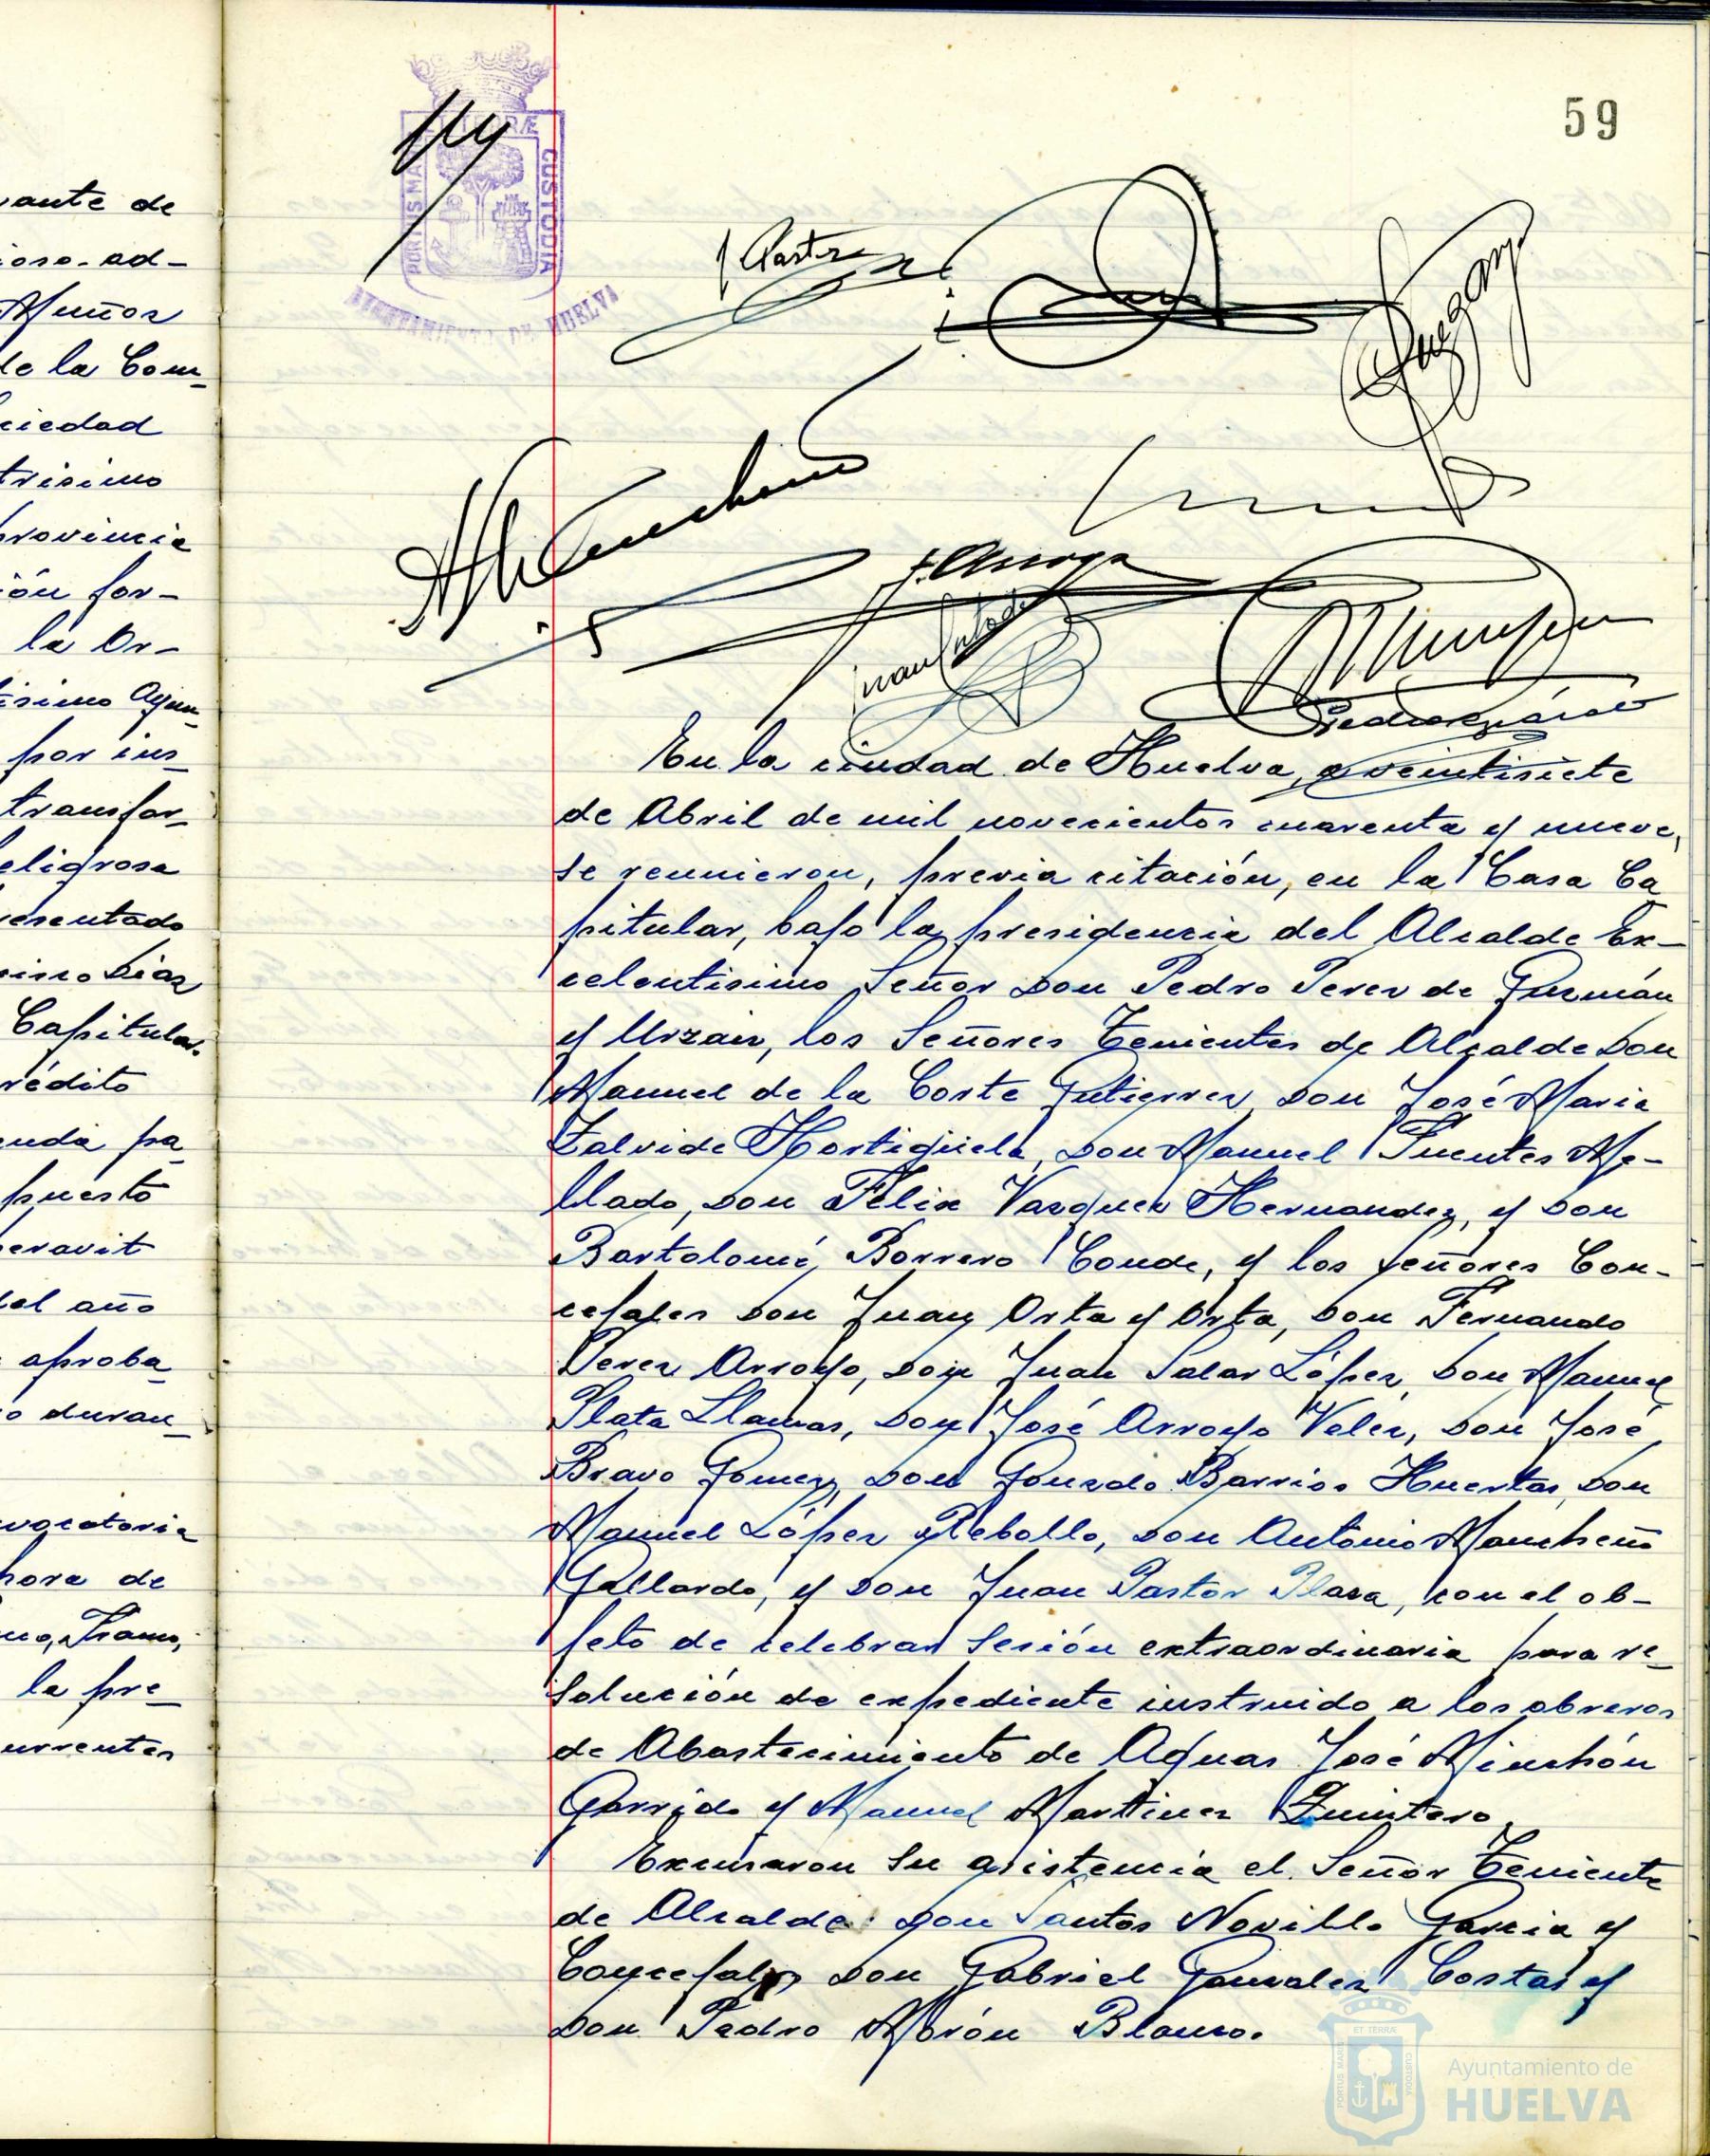 59
ET TERRÆ
PORTUS MARIS
CUSTODIA
AYUNTAMIENTO DE HUELVA
J Pastor
J. Arroyo
vante de
ioso-ad-
Muñoz
de la Com-
ciedad
trisimo
provincia
ión for-
la Or-
tisimo Ayun-
por ins-
transfor-
eligrosa
resentado
Díaz
Capitular.
rédito
enda pa-
puesto
eravit
del año
aproba-
o duran-
vocatoria
hora de
la pre-
urrentes
En la ciudad de Huelva, a veintisiete
de Abril de mil novecientos cuarenta y nueve,
se reunieron, previa citación, en la Casa Ca-
pitular, bajo la presidencia del Alcalde Ex-
celentisimo Señor Don Pedro Perez de Guzmán
y Urzaiz, los Señores Tenientes de Alcalde Don
Manuel de la Corte Gutierrez, Don José Maria
Zalvide Hortigüela, Don Manuel Fuentes Me-
llado, Don Felix Vazquez Hernandez, y Don
Bartolomé Borrero Conde, y los Señores Con-
cejales Don Juan Orta y Orta, Don Fernando
Perez Arroyo, Don Juan Salas López, Don Manuel
Plata Llamas, Don José Arroyo Velez, Don José
Bravo Gomez, Don Gonzalo Barrios Huertas, Don
Manuel López Rebollo, Don Antonio Mancheño
Gallardo, y Don Juan Pastor Plaza, con el ob-
jeto de celebrar Sesión extraordinaria para re-
solución de expediente instruido a los obreros
de Abastecimiento de Aguas José Minchón
Garrido y Manuel Martinez Quintero.
Excusaron su asistencia el Señor Teniente
de Alcalde Don Santos Novillo Garcia y
Concejales Don Gabriel Gonzalez Costas y
Don Pedro Morón Blanco.
ET TERRÆ
PORTUS MARIS
CUSTODIA
Ayuntamiento de
HUELVA